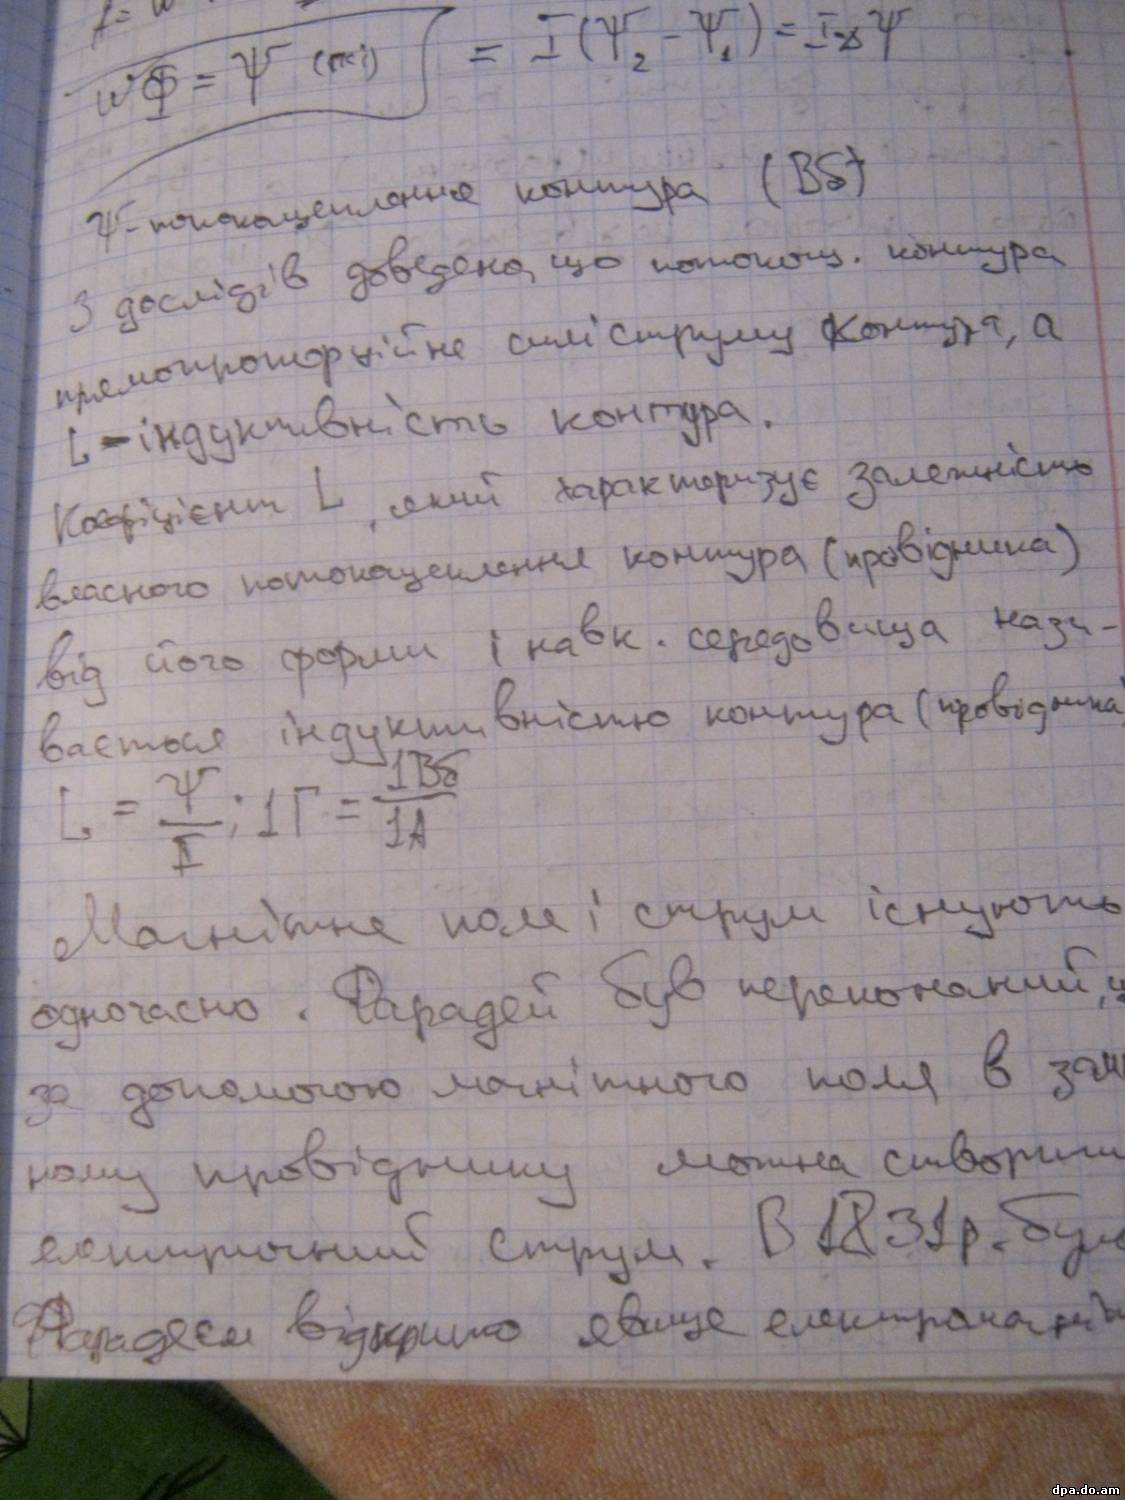 wΦ = Ψ (псі) = I(Ψ₂ - Ψ₁) = IΔΨ
Ψ-потокозчеплення контура (Вб)
З дослідів доведено, що потокозч. контура
прямопропорційне силі струму контура, а
L - індуктивність контура.
Коефіцієнт L, який характеризує залежність
власного потокозчеплення контура (провідника)
від його форми і навк. середовища нази-
вається індуктивністю контура (провідника)
L = Ψ/I ; 1Г = 1Вб/1А
Магнітне поле і струм існують
одночасно. Фарадей був переконаний, щ
за допомогою магнітного поля в зам
ному провіднику можна створити
електричний струм. В 1831р. бул
Фарадеєм відкрито явище електромагніт
dpa.do.am